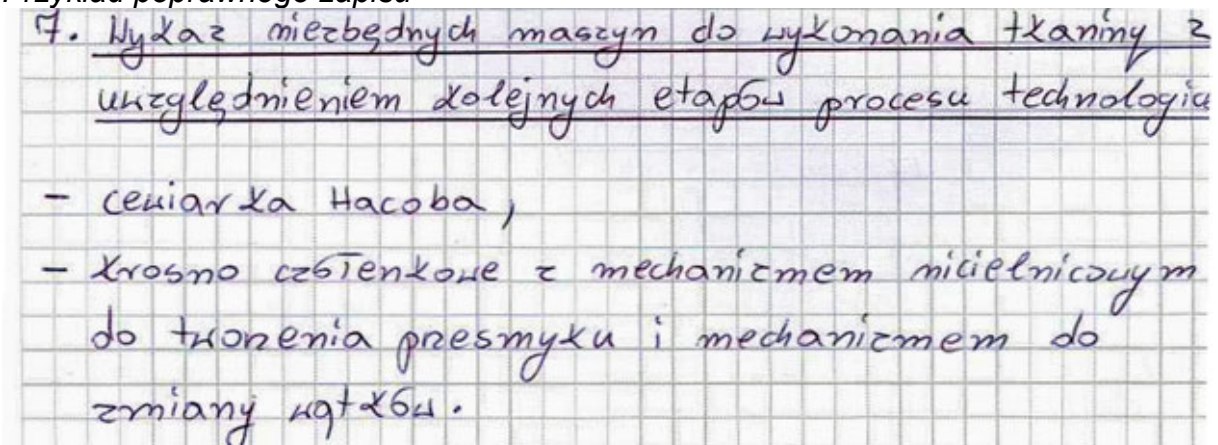 Przykład poprawnego zapisu
7. Wykaz niezbędnych maszyn do wykonania tkaniny z
uwzględnieniem kolejnych etapów procesu technologic
- cewiarka Hacoba,
- krosno czółenkowe z mechanizmem nicielnicowym
do tworzenia przesmyku i mechanizmem do
zmiany wątków.